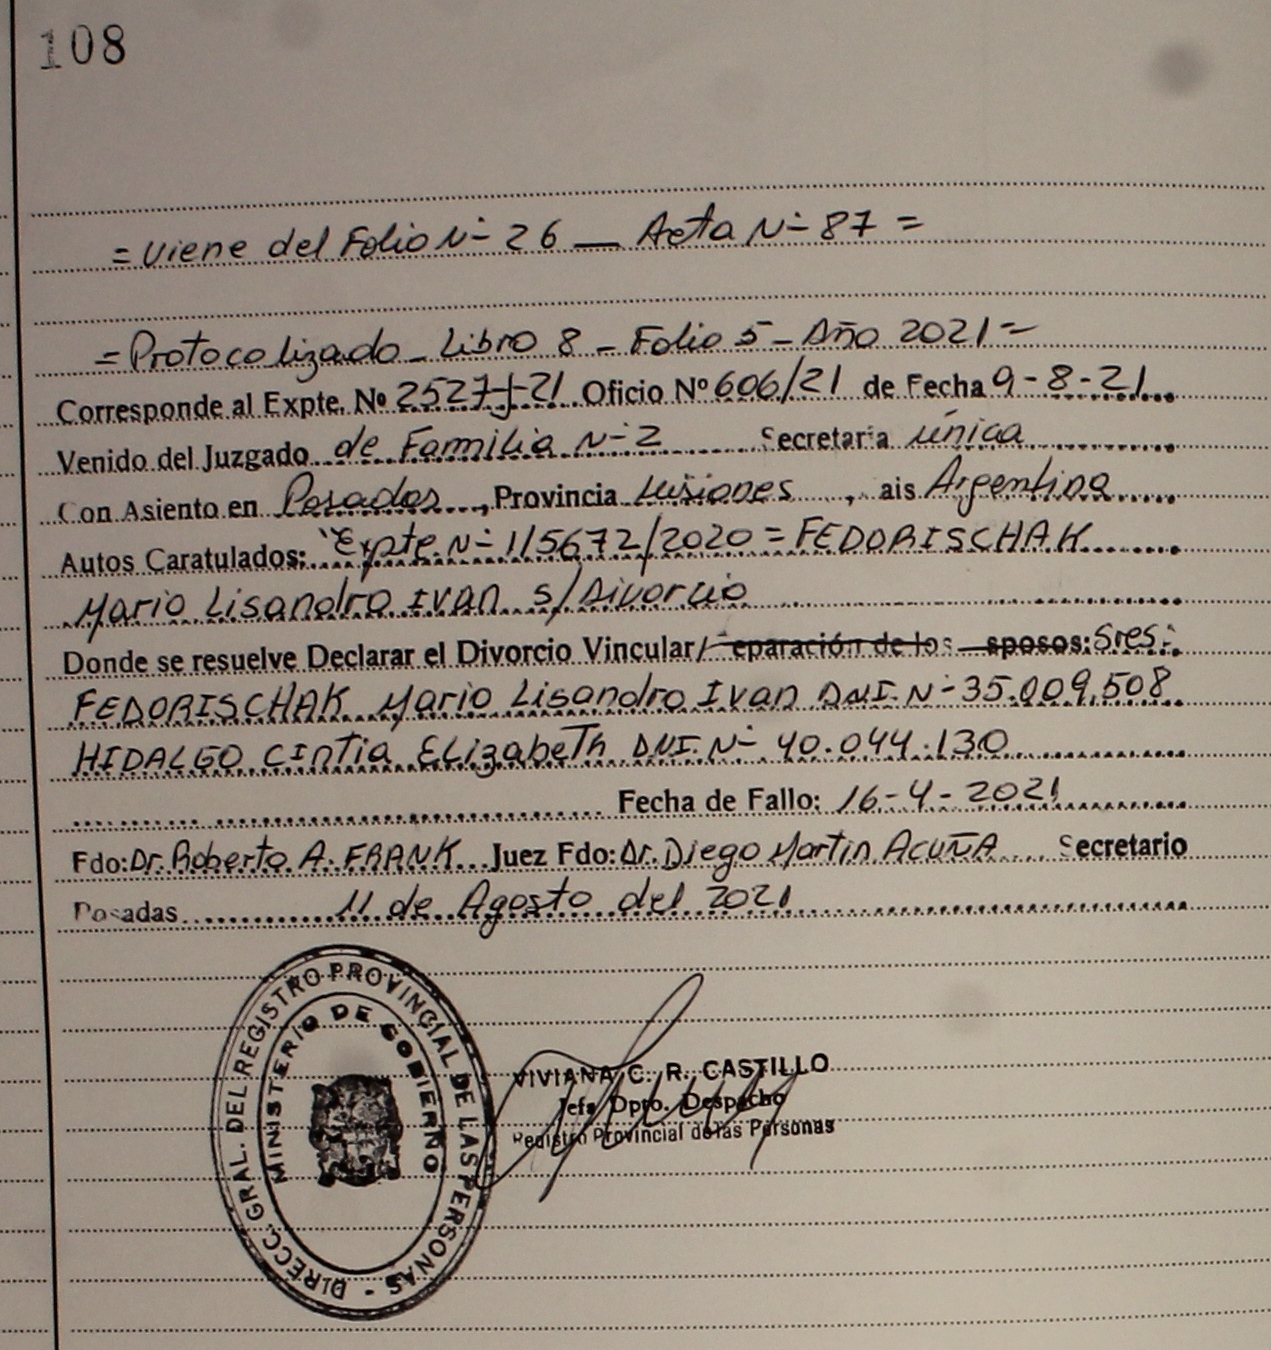 108
= Viene del Folio Nº 26 — Acta Nº 87 =
= Protocolizado - Libro 8 - Folio 5 - Año 2021 =
Corresponde al Expte. Nº 2527-J-21 Oficio Nº 606/21 de Fecha 9-8-21
Venido del Juzgado de Familia Nº 2 Secretaria única
Con Asiento en Posadas, Provincia Misiones, ais Argentina
Autos Caratulados: "Expte. Nº 115672/2020 = FEDORISCHAK
Mario Lisandro IVAN s/Divorcio
Donde se resuelve Declarar el Divorcio Vincular/ eparación de los sposos: Sres:
FEDORISCHAK Mario Lisandro Ivan DNI. Nº 35.009.508
HIDALGO CINTIA ELizabeTh DNI. Nº 40.044.130
Fecha de Fallo: 16-4-2021
Fdo: Dr. Roberto A. FRANK Juez Fdo: Dr. Diego Martin ACUÑA Secretario
Posadas 11 de Agosto del 2021
DIRECC. GRAL. DEL REGISTRO PROVINCIAL DE LAS PERSONAS -
MINISTERIO DE GOBIERNO
VIVIANA C. R. CASTILLO
Jefa Dpto. Despacho
Registro Provincial de las Personas